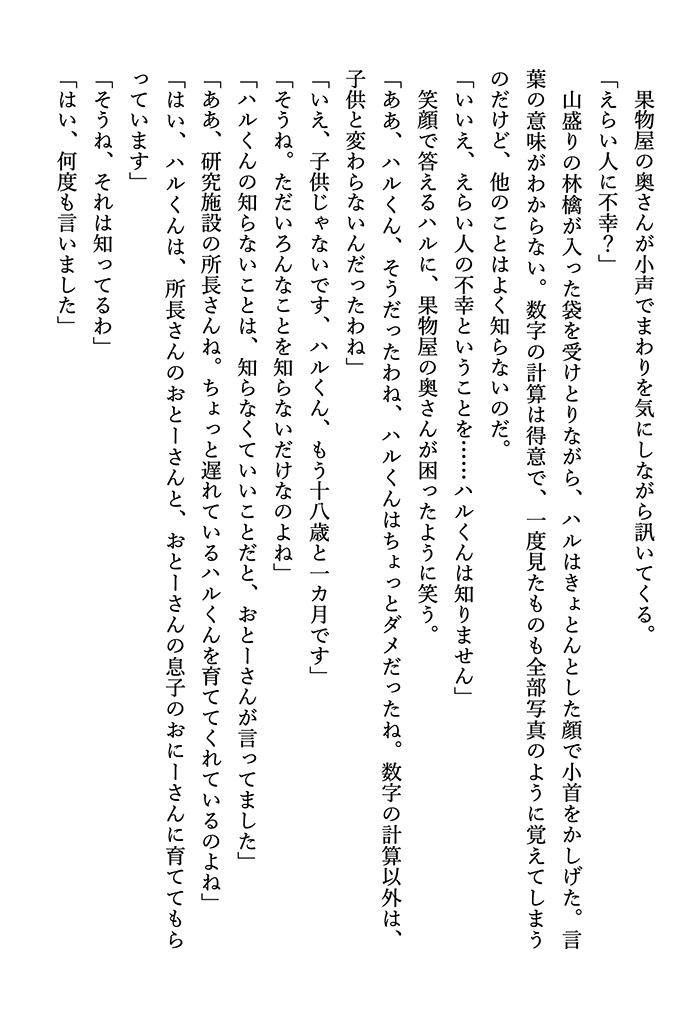 果物屋の奥さんが小声でまわりを気にしながら訊いてくる。
「えらい人に不幸？」
　山盛りの林檎が入った袋を受けとりながら、ハルはきょとんとした顔で小首をかしげた。言
葉の意味がわからない。数字の計算は得意で、一度見たものも全部写真のように覚えてしまう
のだけど、他のことはよく知らないのだ。
「いいえ、えらい人の不幸ということを……ハルくんは知りません」
　笑顔で答えるハルに、果物屋の奥さんが困ったように笑う。
「ああ、ハルくん、そうだったわね、ハルくんはちょっとダメだったね。数字の計算以外は、
子供と変わらないんだったわね」
「いえ、子供じゃないです、ハルくん、もう十八歳と一カ月です」
「そうね。ただいろんなことを知らないだけなのよね」
「ハルくんの知らないことは、知らなくていいことだと、おとーさんが言ってました」
「ああ、研究施設の所長さんね。ちょっと遅れているハルくんを育ててくれているのよね」
「はい、ハルくんは、所長さんのおとーさんと、おとーさんの息子のおにーさんに育ててもら
っています」
「そうね、それは知ってるわ」
「はい、何度も言いました」